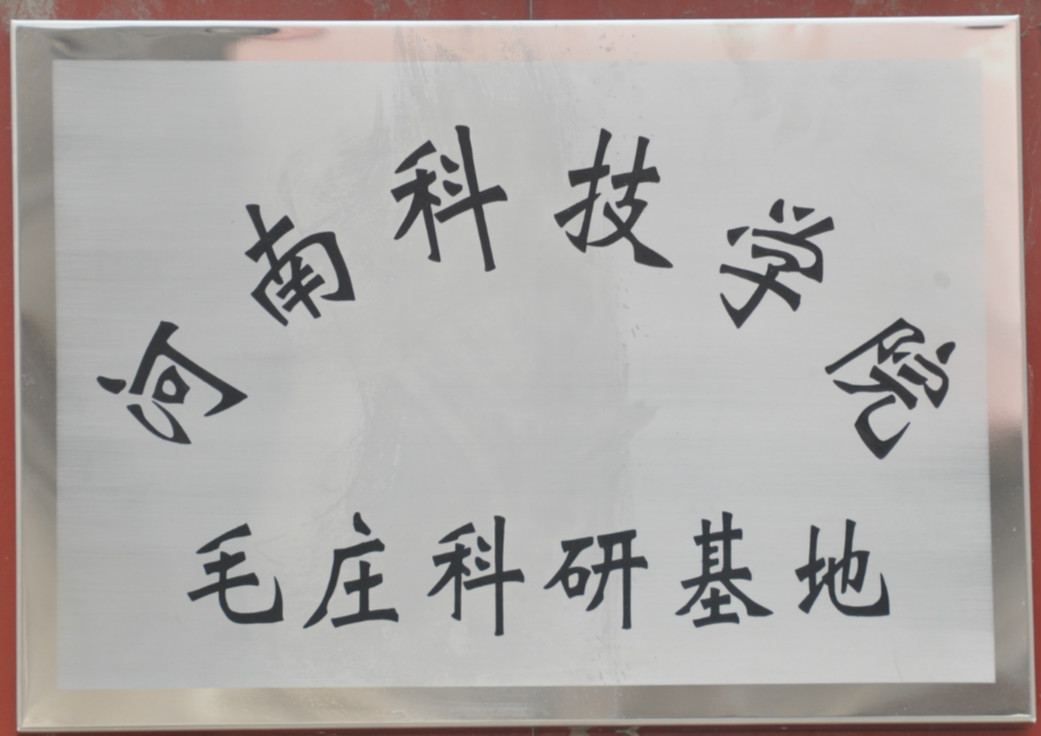 河南科技学院
毛庄科研基地